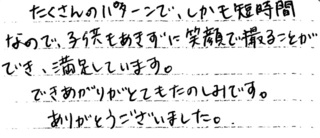 たくさんのパターンで、しかも短時間
なので、子供もあきずに笑顔で撮ることが
でき、満足しています。
できあがりがとてもたのしみです。
ありがとうございました。